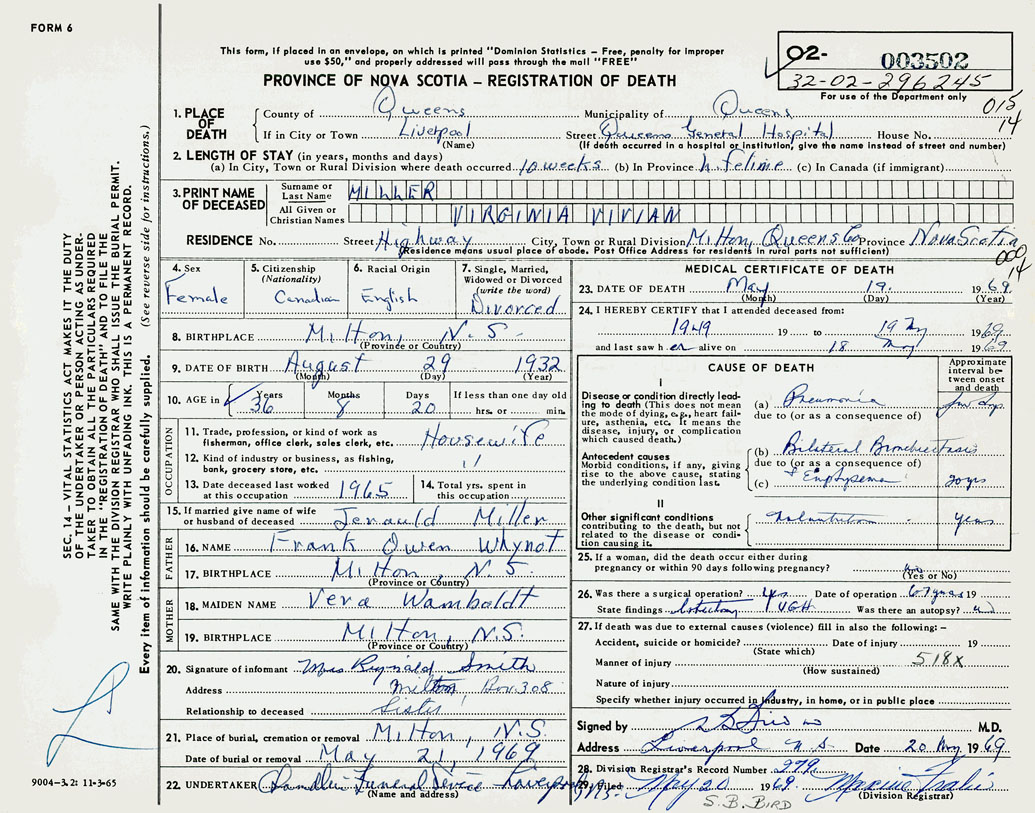 FORM 6
This form, if placed in an envelope, on which is printed "Dominion Statistics – Free, penalty for improper
use $50," and properly addressed will pass through the mail "FREE"
PROVINCE OF NOVA SCOTIA – REGISTRATION OF DEATH
02- 003502
32-02-296245
For use of the Department only
015
14
1. PLACE OF DEATH County of Queens Municipality of Queens
If in City or Town Liverpool Street Queens General Hospital House No.
(Name) (If death occurred in a hospital or institution, give the name instead of street and number)
2. LENGTH OF STAY (in years, months and days)
(a) In City, Town or Rural Division where death occurred 10 weeks (b) In Province Lifetime (c) In Canada (if immigrant)
3. PRINT NAME OF DECEASED Surname or Last Name MILLER
All Given or Christian Names VIRGINIA VIVIAN
RESIDENCE No. Street Highway City, Town or Rural Division Milton, Queens Co Province Nova Scotia
(Residence means usual place of abode. Post Office Address for residents in rural parts not sufficient)
009
14
4. Sex Female
5. Citizenship (Nationality) Canadian
6. Racial Origin English
7. Single, Married, Widowed or Divorced (write the word) Divorced
8. BIRTHPLACE Milton, N.S.
(Province or Country)
9. DATE OF BIRTH August 29 1932
(Month) (Day) (Year)
10. AGE in Years 36 Months 8 Days 20 If less than one day old hrs. or min.
OCCUPATION
11. Trade, profession, or kind of work as fisherman, office clerk, sales clerk, etc. Housewife
12. Kind of industry or business, as fishing, bank, grocery store, etc. "
13. Date deceased last worked at this occupation 1965 14. Total yrs. spent in this occupation
15. If married give name of wife or husband of deceased Jerauld Miller
FATHER
16. NAME Frank Owen Whynot
17. BIRTHPLACE Milton, N.S.
(Province or Country)
MOTHER
18. MAIDEN NAME Vera Wamboldt
19. BIRTHPLACE Milton, N.S.
(Province or Country)
20. Signature of informant Mrs Reynald Smith
Address Milton, Box 308
Relationship to deceased Sister
21. Place of burial, cremation or removal Milton, N.S.
Date of burial or removal May 21, 1969
22. UNDERTAKER Chandlers Funeral Service Liverpool, N.S.
(Name and address)
MEDICAL CERTIFICATE OF DEATH
23. DATE OF DEATH May 19. 1969.
(Month) (Day) (Year)
24. I HEREBY CERTIFY that I attended deceased from:
1949 19 to 19 My 1969
and last saw her alive on 18 May 1969.
CAUSE OF DEATH
Approximate interval between onset and death
I
Disease or condition directly leading to death (This does not mean the mode of dying, e.g., heart failure, asthenia, etc. It means the disease, injury, or complication which caused death.)
(a) Pneumonia few days
due to (or as a consequence of)
Antecedent causes
Morbid conditions, if any, giving rise to the above cause, stating the underlying condition last.
(b) Bilateral Bronchiectasis
due to (or as a consequence of)
(c) + Emphysema 20 yrs
II
Other significant conditions
contributing to the death, but not related to the disease or condition causing it.
Malnutrition years
25. If a woman, did the death occur either during
pregnancy or within 90 days following pregnancy? no
(Yes or No)
26. Was there a surgical operation? yes Date of operation 6-7 years 19
State findings Lobectomy VGH Was there an autopsy? no
27. If death was due to external causes (violence) fill in also the following: –
Accident, suicide or homicide? Date of injury 19
(State which)
Manner of injury 518X
(How sustained)
Nature of injury
Specify whether injury occurred in industry, in home, or in public place
Signed by M.D.
Address Liverpool N S Date 20 My 1969
28. Division Registrar's Record Number 279
29. Filed May 20 1969.
(Division Registrar)
S.B. BIRD
SEC. 14 – VITAL STATISTICS ACT MAKES IT THE DUTY
OF THE UNDERTAKER OR PERSON ACTING AS UNDER-
TAKER TO OBTAIN ALL THE PARTICULARS REQUIRED
IN THE "REGISTRATION OF DEATH" AND TO FILE THE
SAME WITH THE DIVISION REGISTRAR WHO SHALL ISSUE THE BURIAL PERMIT.
WRITE PLAINLY WITH UNFADING INK. THIS IS A PERMANENT RECORD.
Every item of information should be carefully supplied. (See reverse side for instructions.)
9004-3.2: 11-3-65